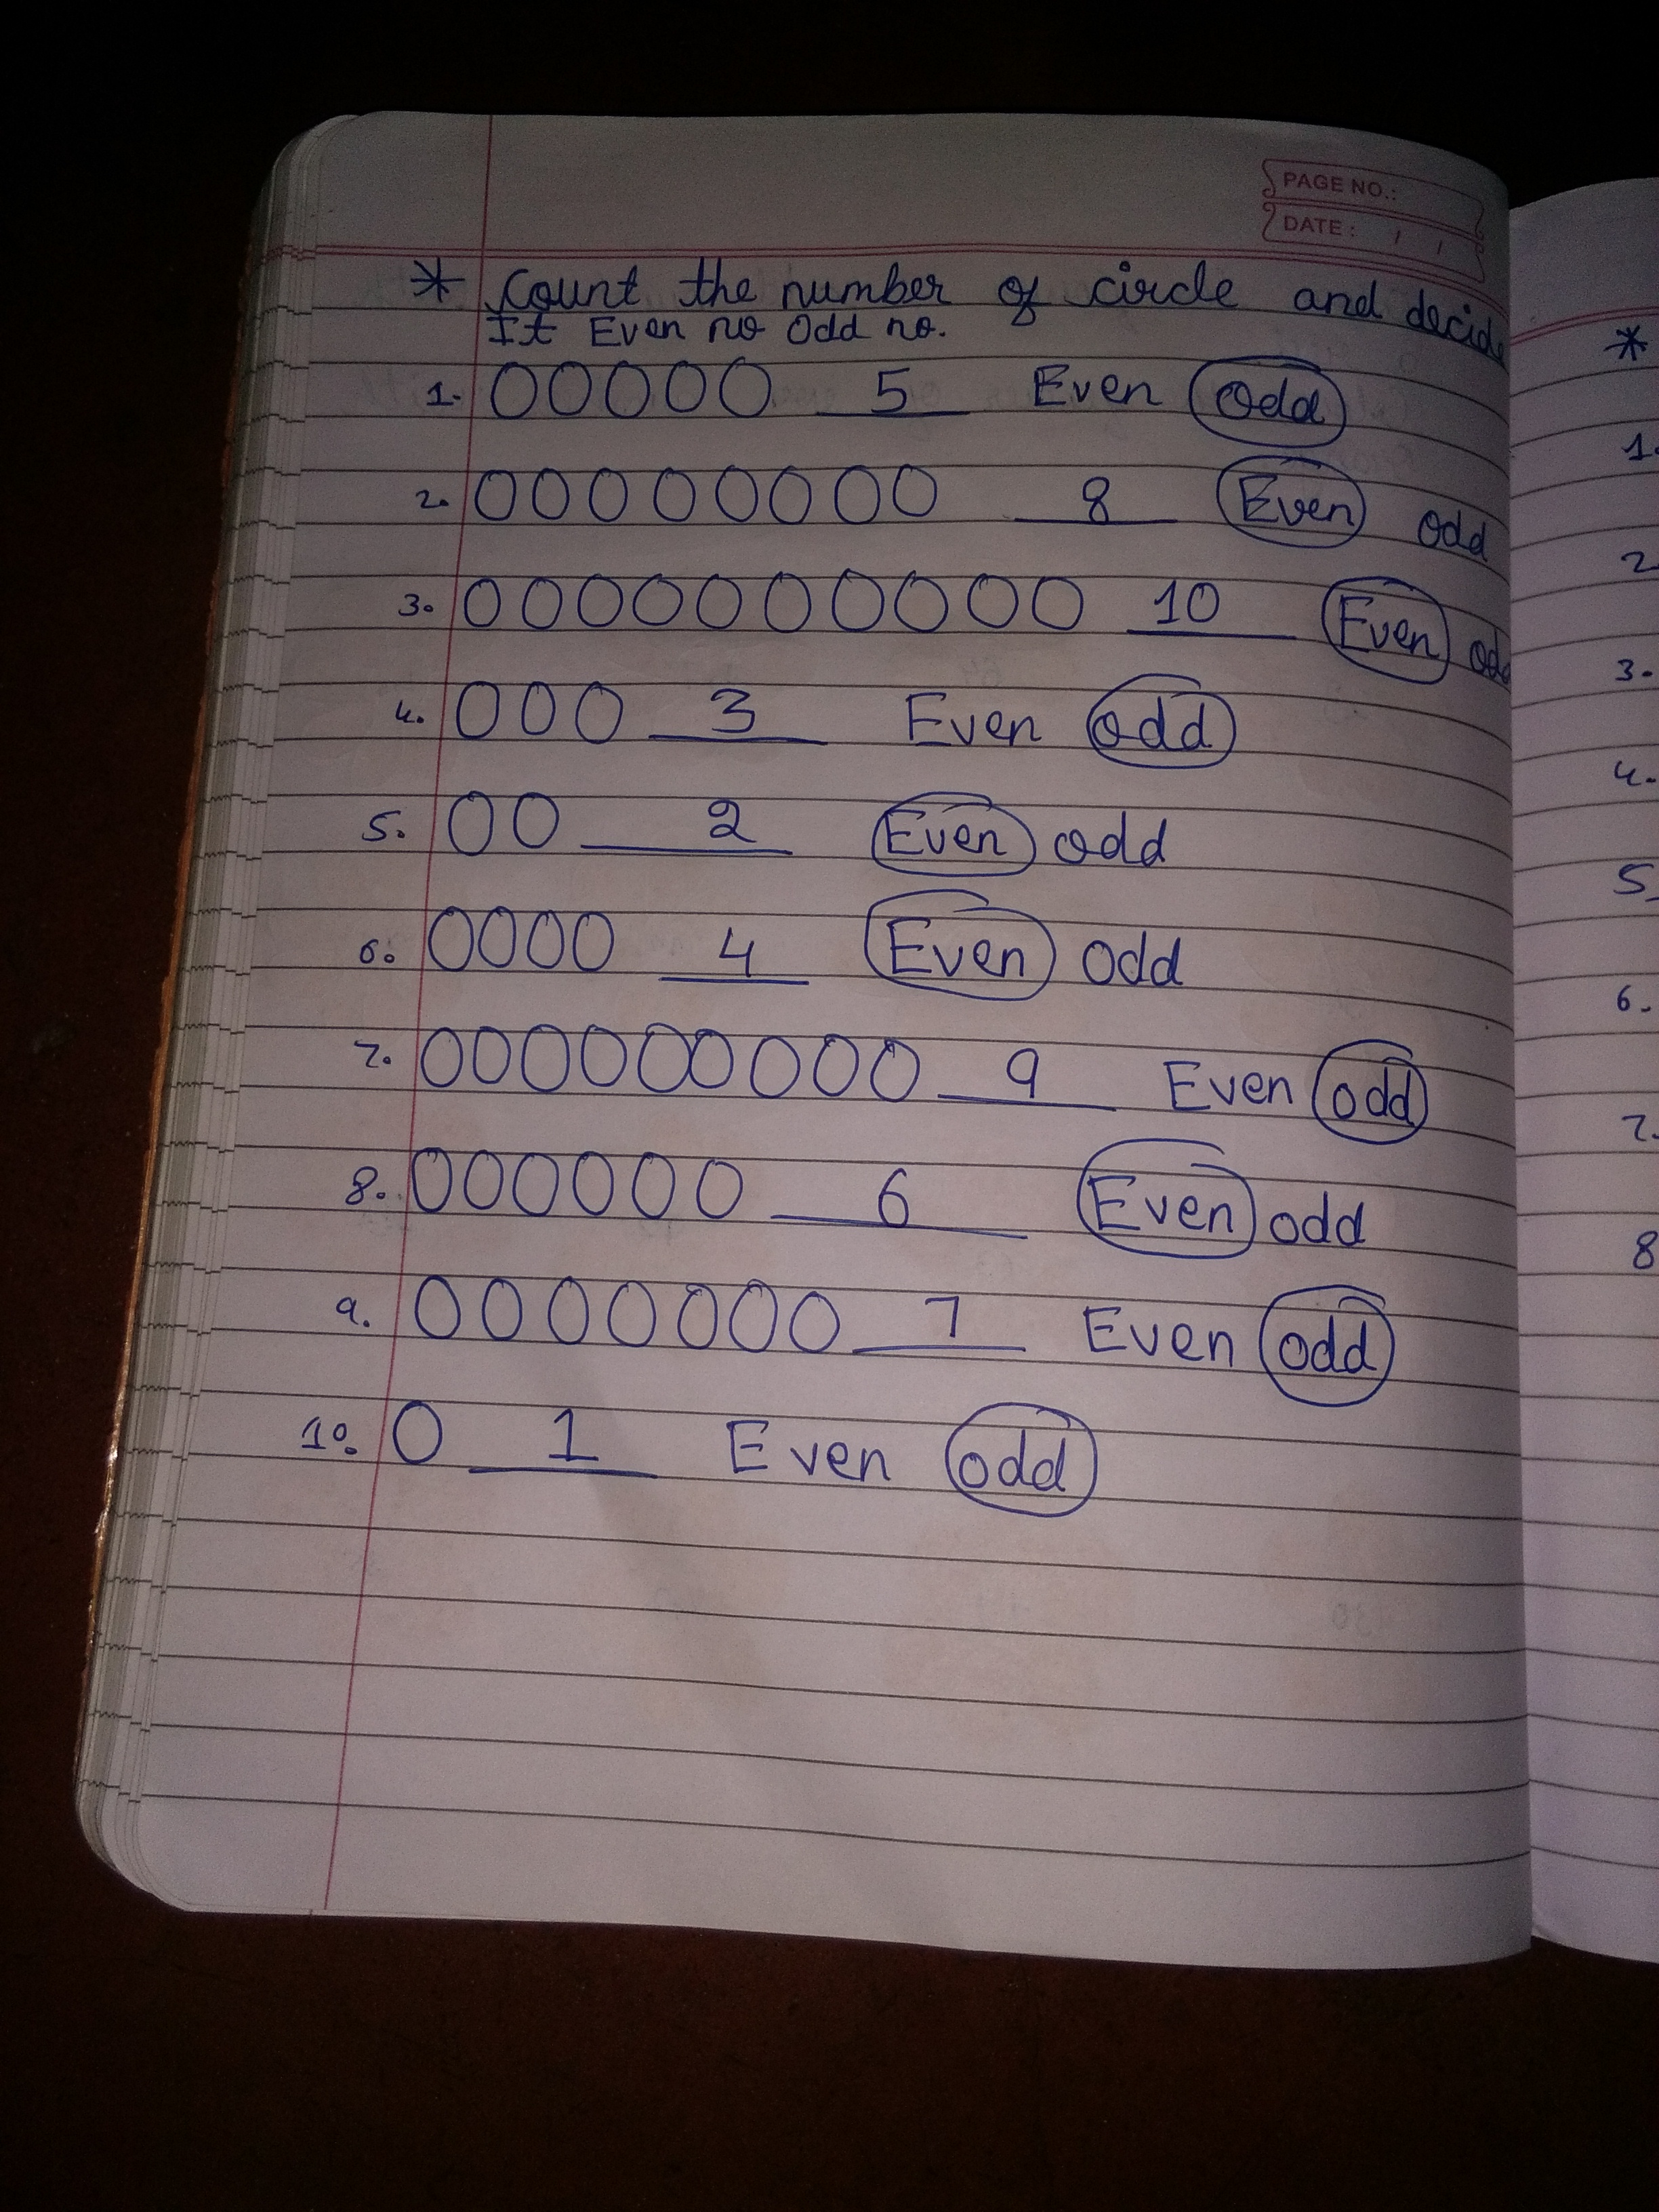 PAGE NO.:
DATE : / /
* Count the number of circle and decide
It Even no Odd no.
1. OOOOO 5 Even Odd
2. OOOOOOOO 8 Even odd
3. OOOOOOOOOO 10 Even odd
4. OOO 3 Even odd
5. OO 2 Even odd
6. OOOO 4 Even Odd
7. OOOOOOOOO 9 Even odd
8. OOOOOO 6 Even odd
9. OOOOOOO 7 Even odd
10. O 1 Even odd
*
1.
2.
3.
4.
5.
6.
7.
8